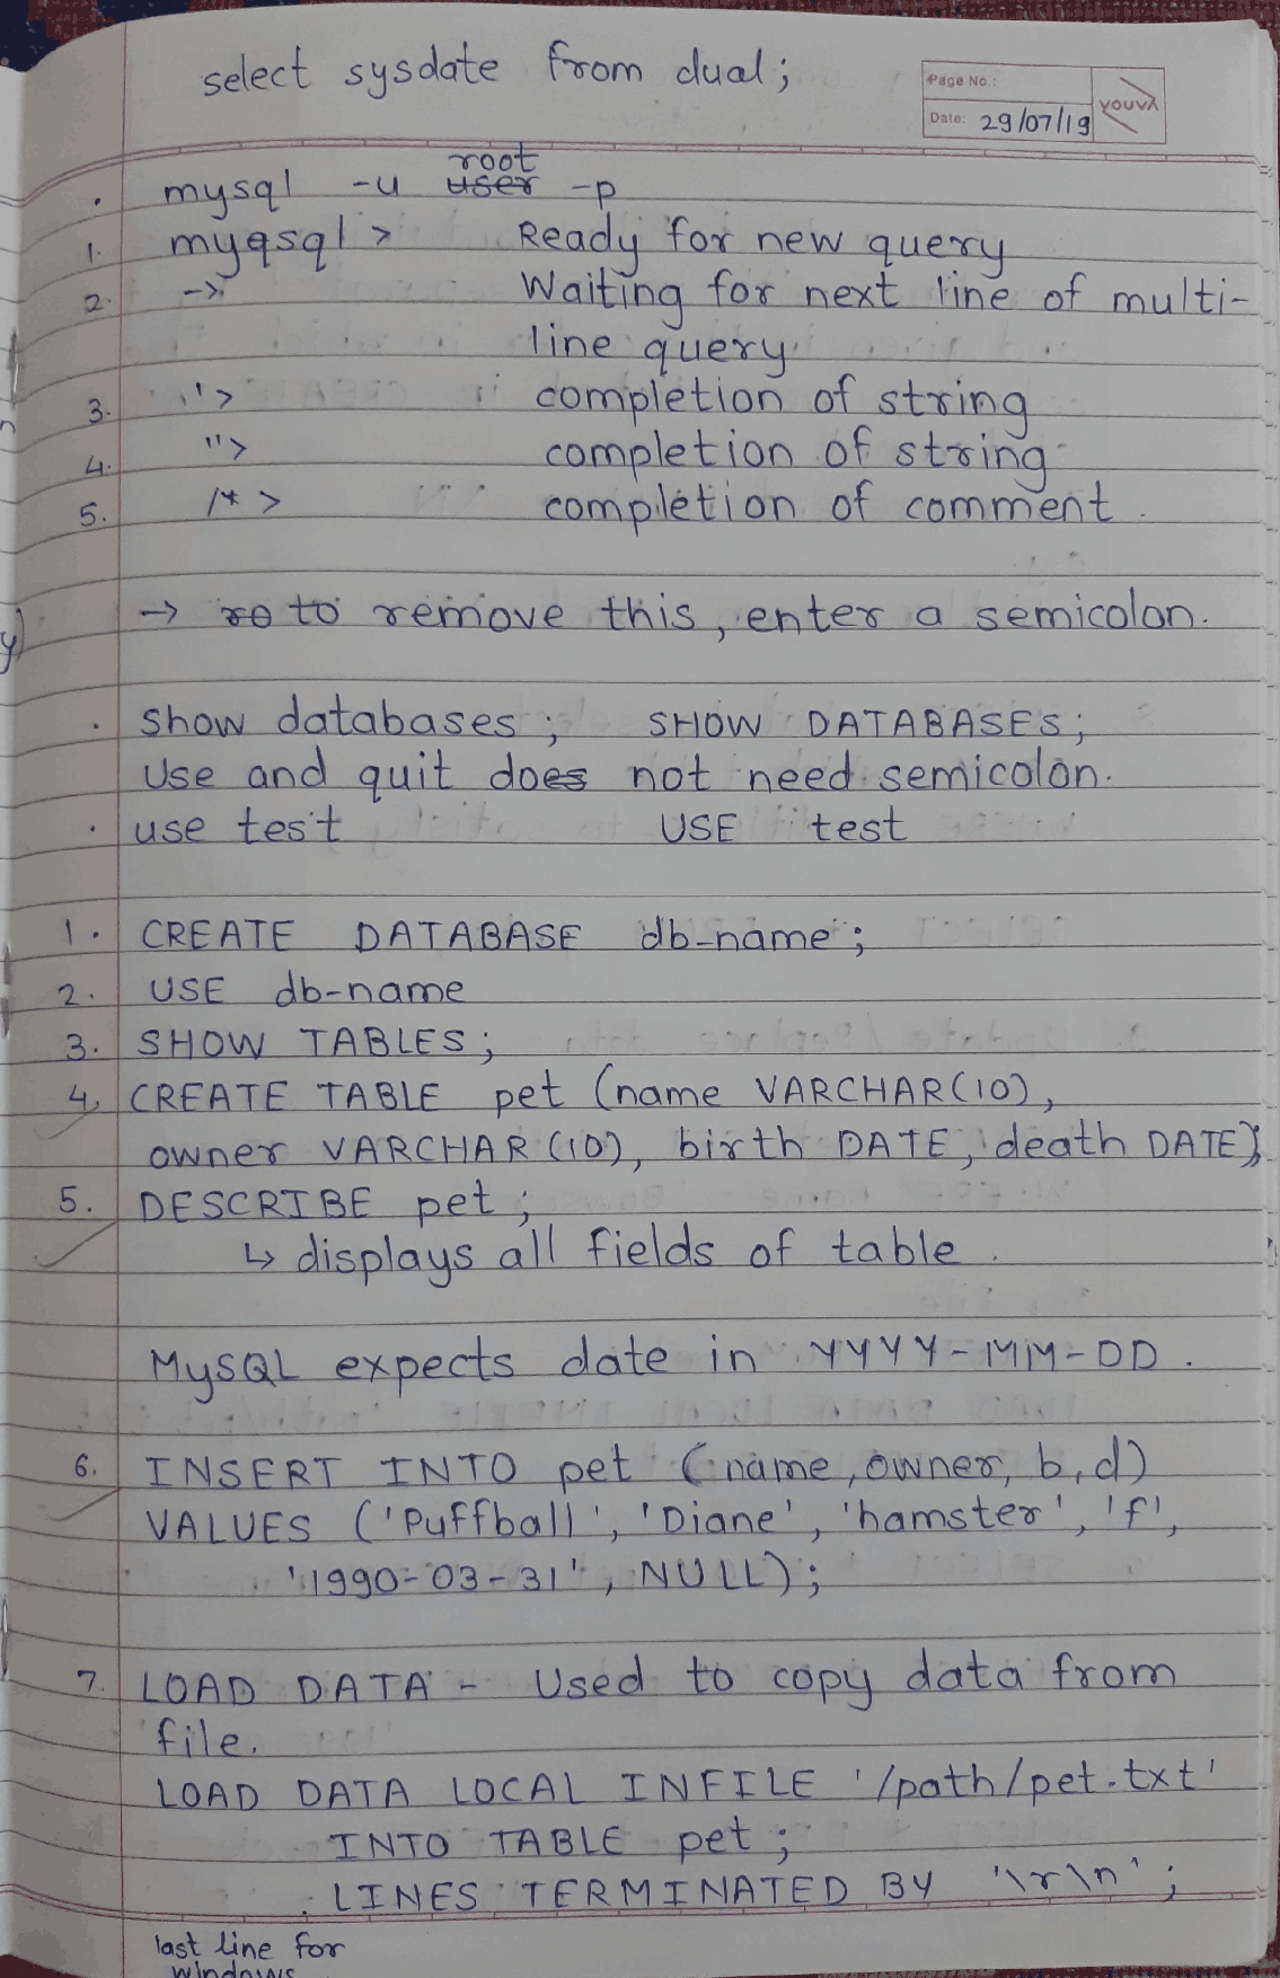 select sysdate from dual;
Page No.:
youva
Date: 29/07/19
root
. mysql -u user -p
1. myqsql > Ready for new query
2. -> Waiting for next line of multi-
line query
3. '> completion of string
4. "> completion of string
5. /* > completion of comment.
→ ro to remove this, enter a semicolon.
. show databases; SHOW DATABASES;
Use and quit does not need semicolon.
. use test USE test
1. CREATE DATABASE db-name;
2. USE db-name
3. SHOW TABLES;
4. CREATE TABLE pet (name VARCHAR(10),
owner VARCHAR(10), birth DATE, death DATE);
5. DESCRIBE pet;
↳ displays all fields of table.
MySQL expects date in YYYY-MM-DD.
6. INSERT INTO pet (name, owner, b, d)
VALUES ('Puffball', 'Diane', 'hamster', 'f',
'1990-03-31', NULL);
7. LOAD DATA - Used to copy data from
file.
LOAD DATA LOCAL INFILE '/path/pet.txt'
INTO TABLE pet;
LINES TERMINATED BY '\r\n';
last line for
windows